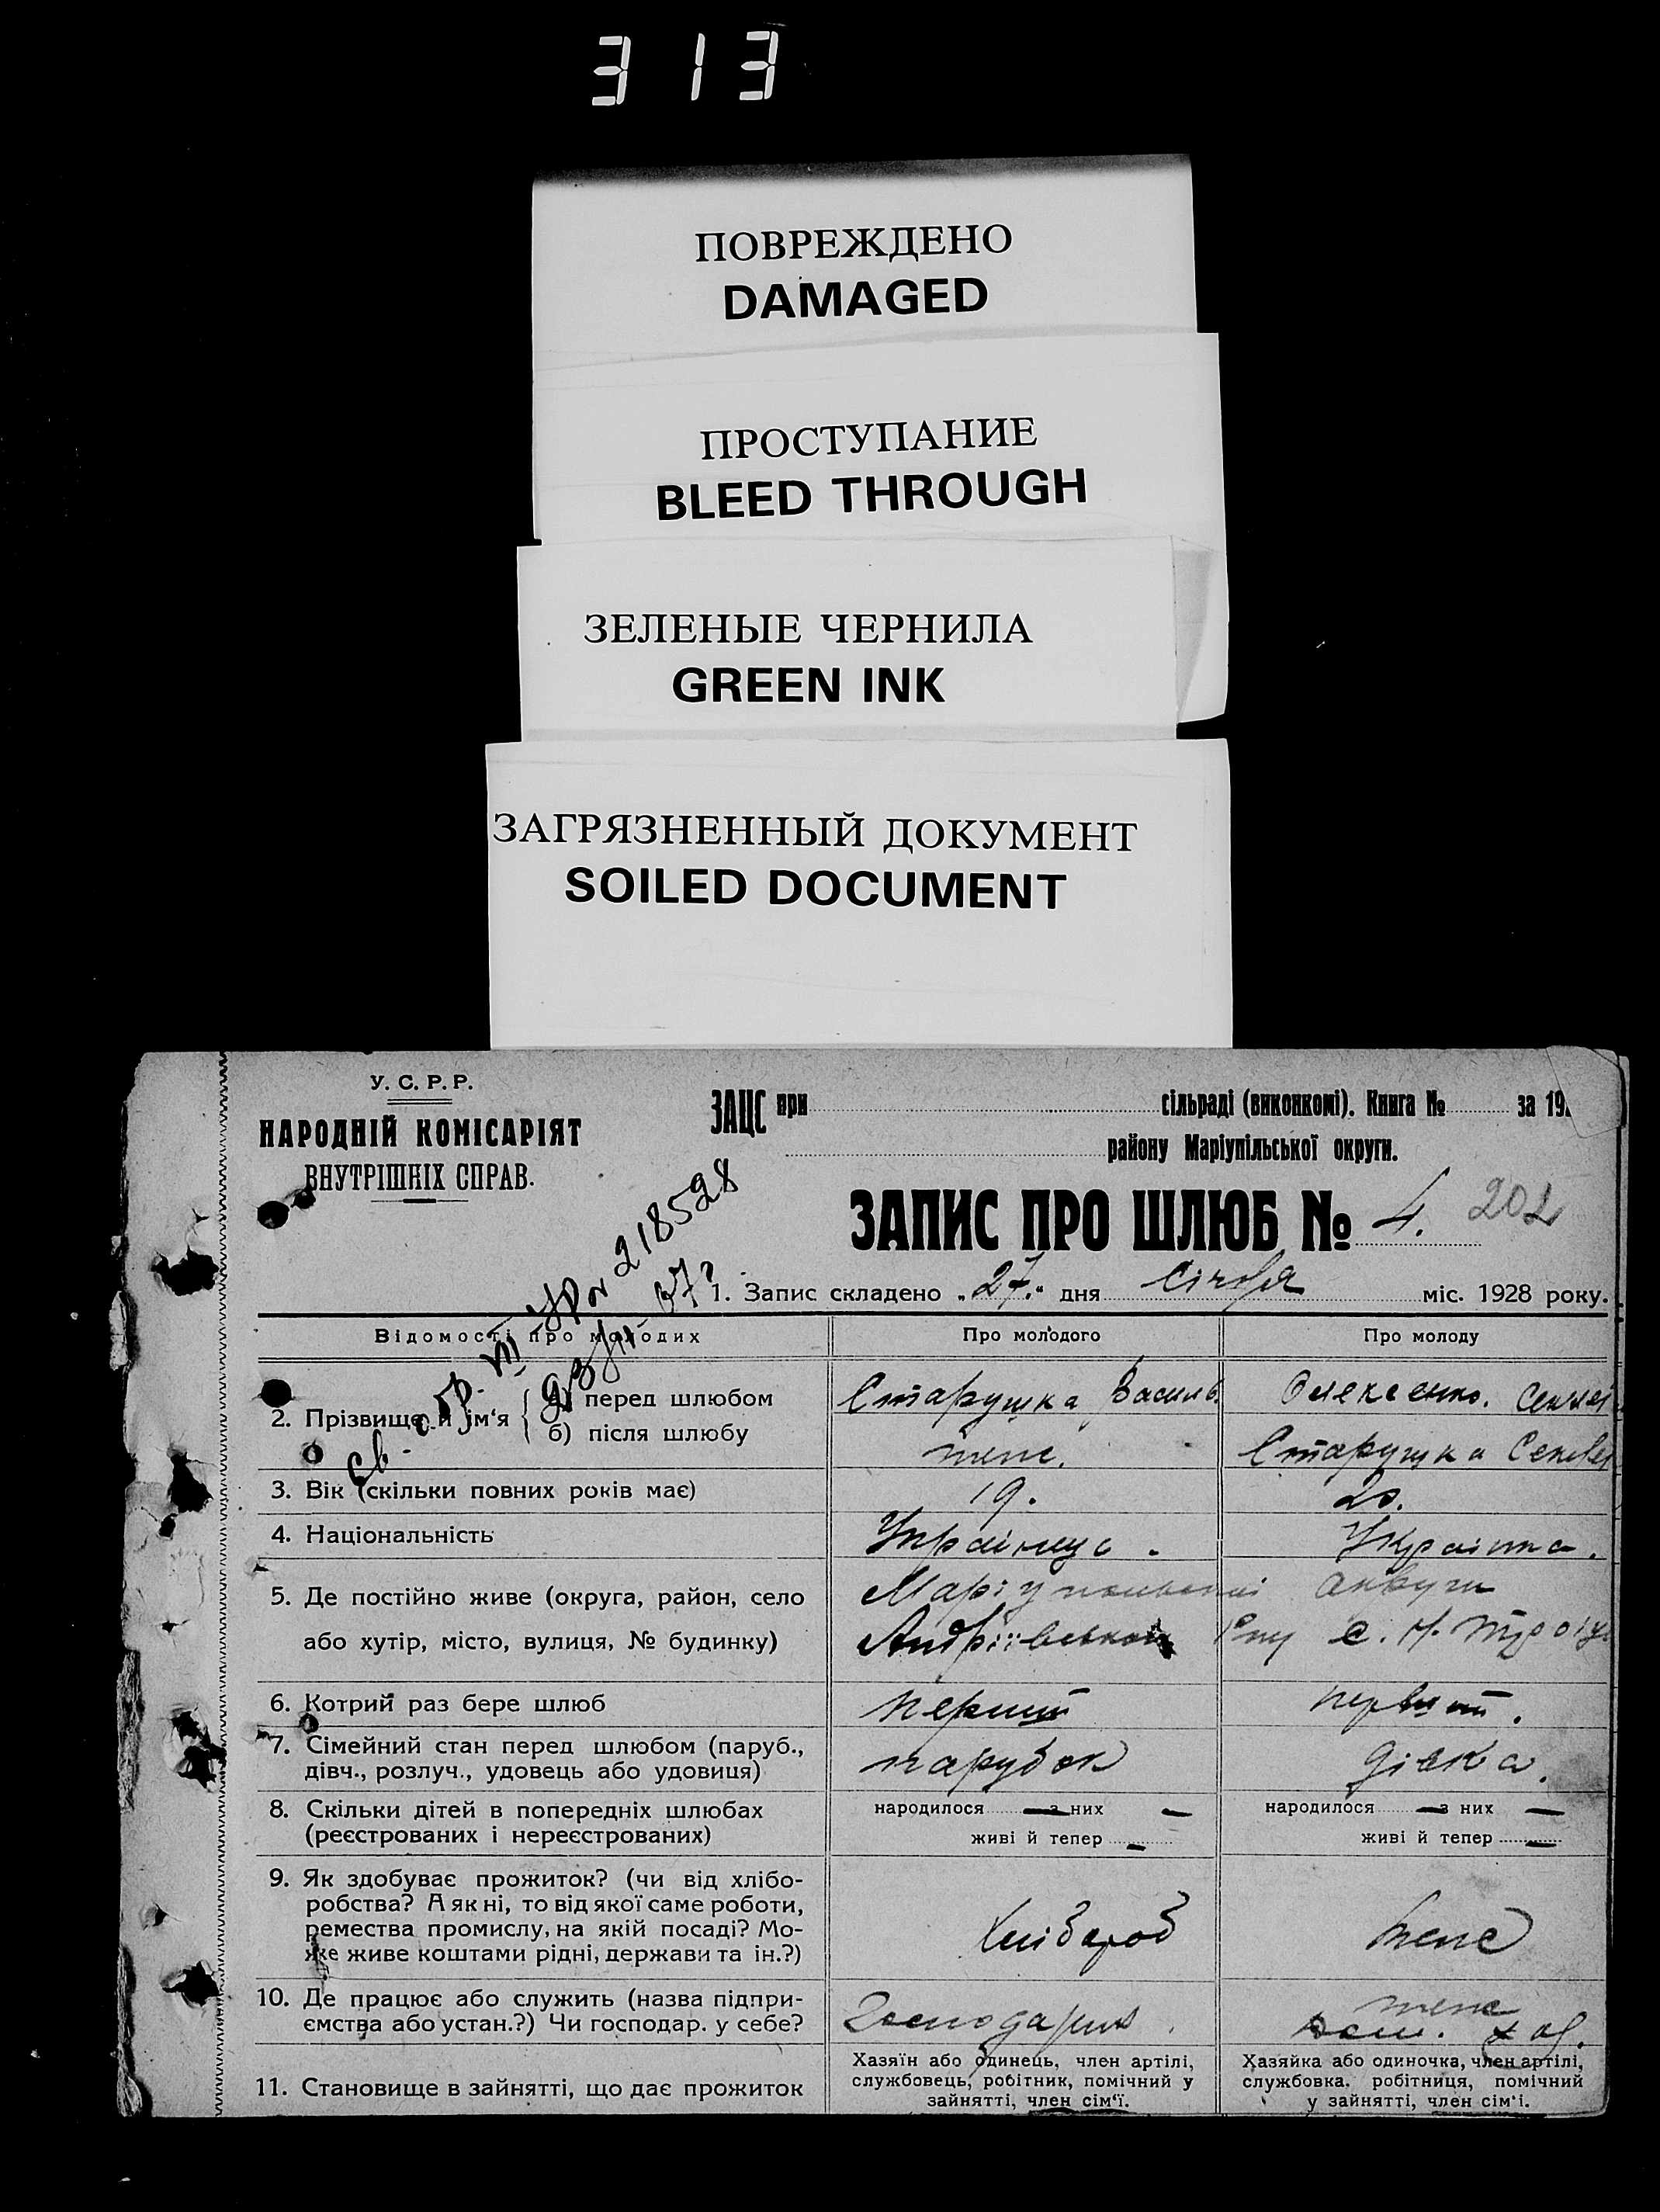 313
ПОВРЕЖДЕНО
DAMAGED
ПРОСТУПАНИЕ
BLEED THROUGH
ЗЕЛЕНЫЕ ЧЕРНИЛА
GREEN INK
ЗАГРЯЗНЕННЫЙ ДОКУМЕНТ
SOILED DOCUMENT
У. С. Р. Р.
НАРОДНІЙ КОМІСАРІЯТ
ВНУТРІШНІХ СПРАВ.
ЗАЦС при сільраді (виконкомі). Книга № за 19
району Маріупільської округи.
ЗАПИС ПРО ШЛЮБ № 4. 202
218528
1. Запис складено „27.“ дня Січня міс. 1928 року.
Відомості про молодих Про молодого Про молоду
2. Прізвище й ім‘я
а) перед шлюбом Старушка Василь Олексенко.
б) після шлюбу теж. Старушка
3. Вік (скільки повних років має) 19. 20.
4. Національність Українец. Українка.
5. Де постійно живе (округа, район, село
або хутір, місто, вулиця, № будинку)
6. Котрий раз бере шлюб перший первый.
7. Сімейний стан перед шлюбом (паруб.,
дівч., розлуч., удовець або удовиця) парубок дівка.
8. Скільки дітей в попередніх шлюбах
(реєстрованих і нереєстрованих)
народилося — з них —
живі й тепер —
народилося — з них —
живі й тепер —
9. Як здобуває прожиток? (чи від хлібо-
робства? А як ні, то від якої саме роботи,
ремества промислу, на якій посаді? Мо-
же живе коштами рідні, держави та ін.?)
Хлібороб теж
10. Де працює або служить (назва підпри-
ємства або устан.?) Чи господар. у себе?
теж
11. Становище в зайнятті, що дає прожиток
Хазяїн або одинець, член артілі,
службовець, робітник, помічний у
зайнятті, член сім‘ї.
Хазяйка або одиночка, член артілі,
службовка, робітниця, помічний
у зайнятті, член сім‘і.